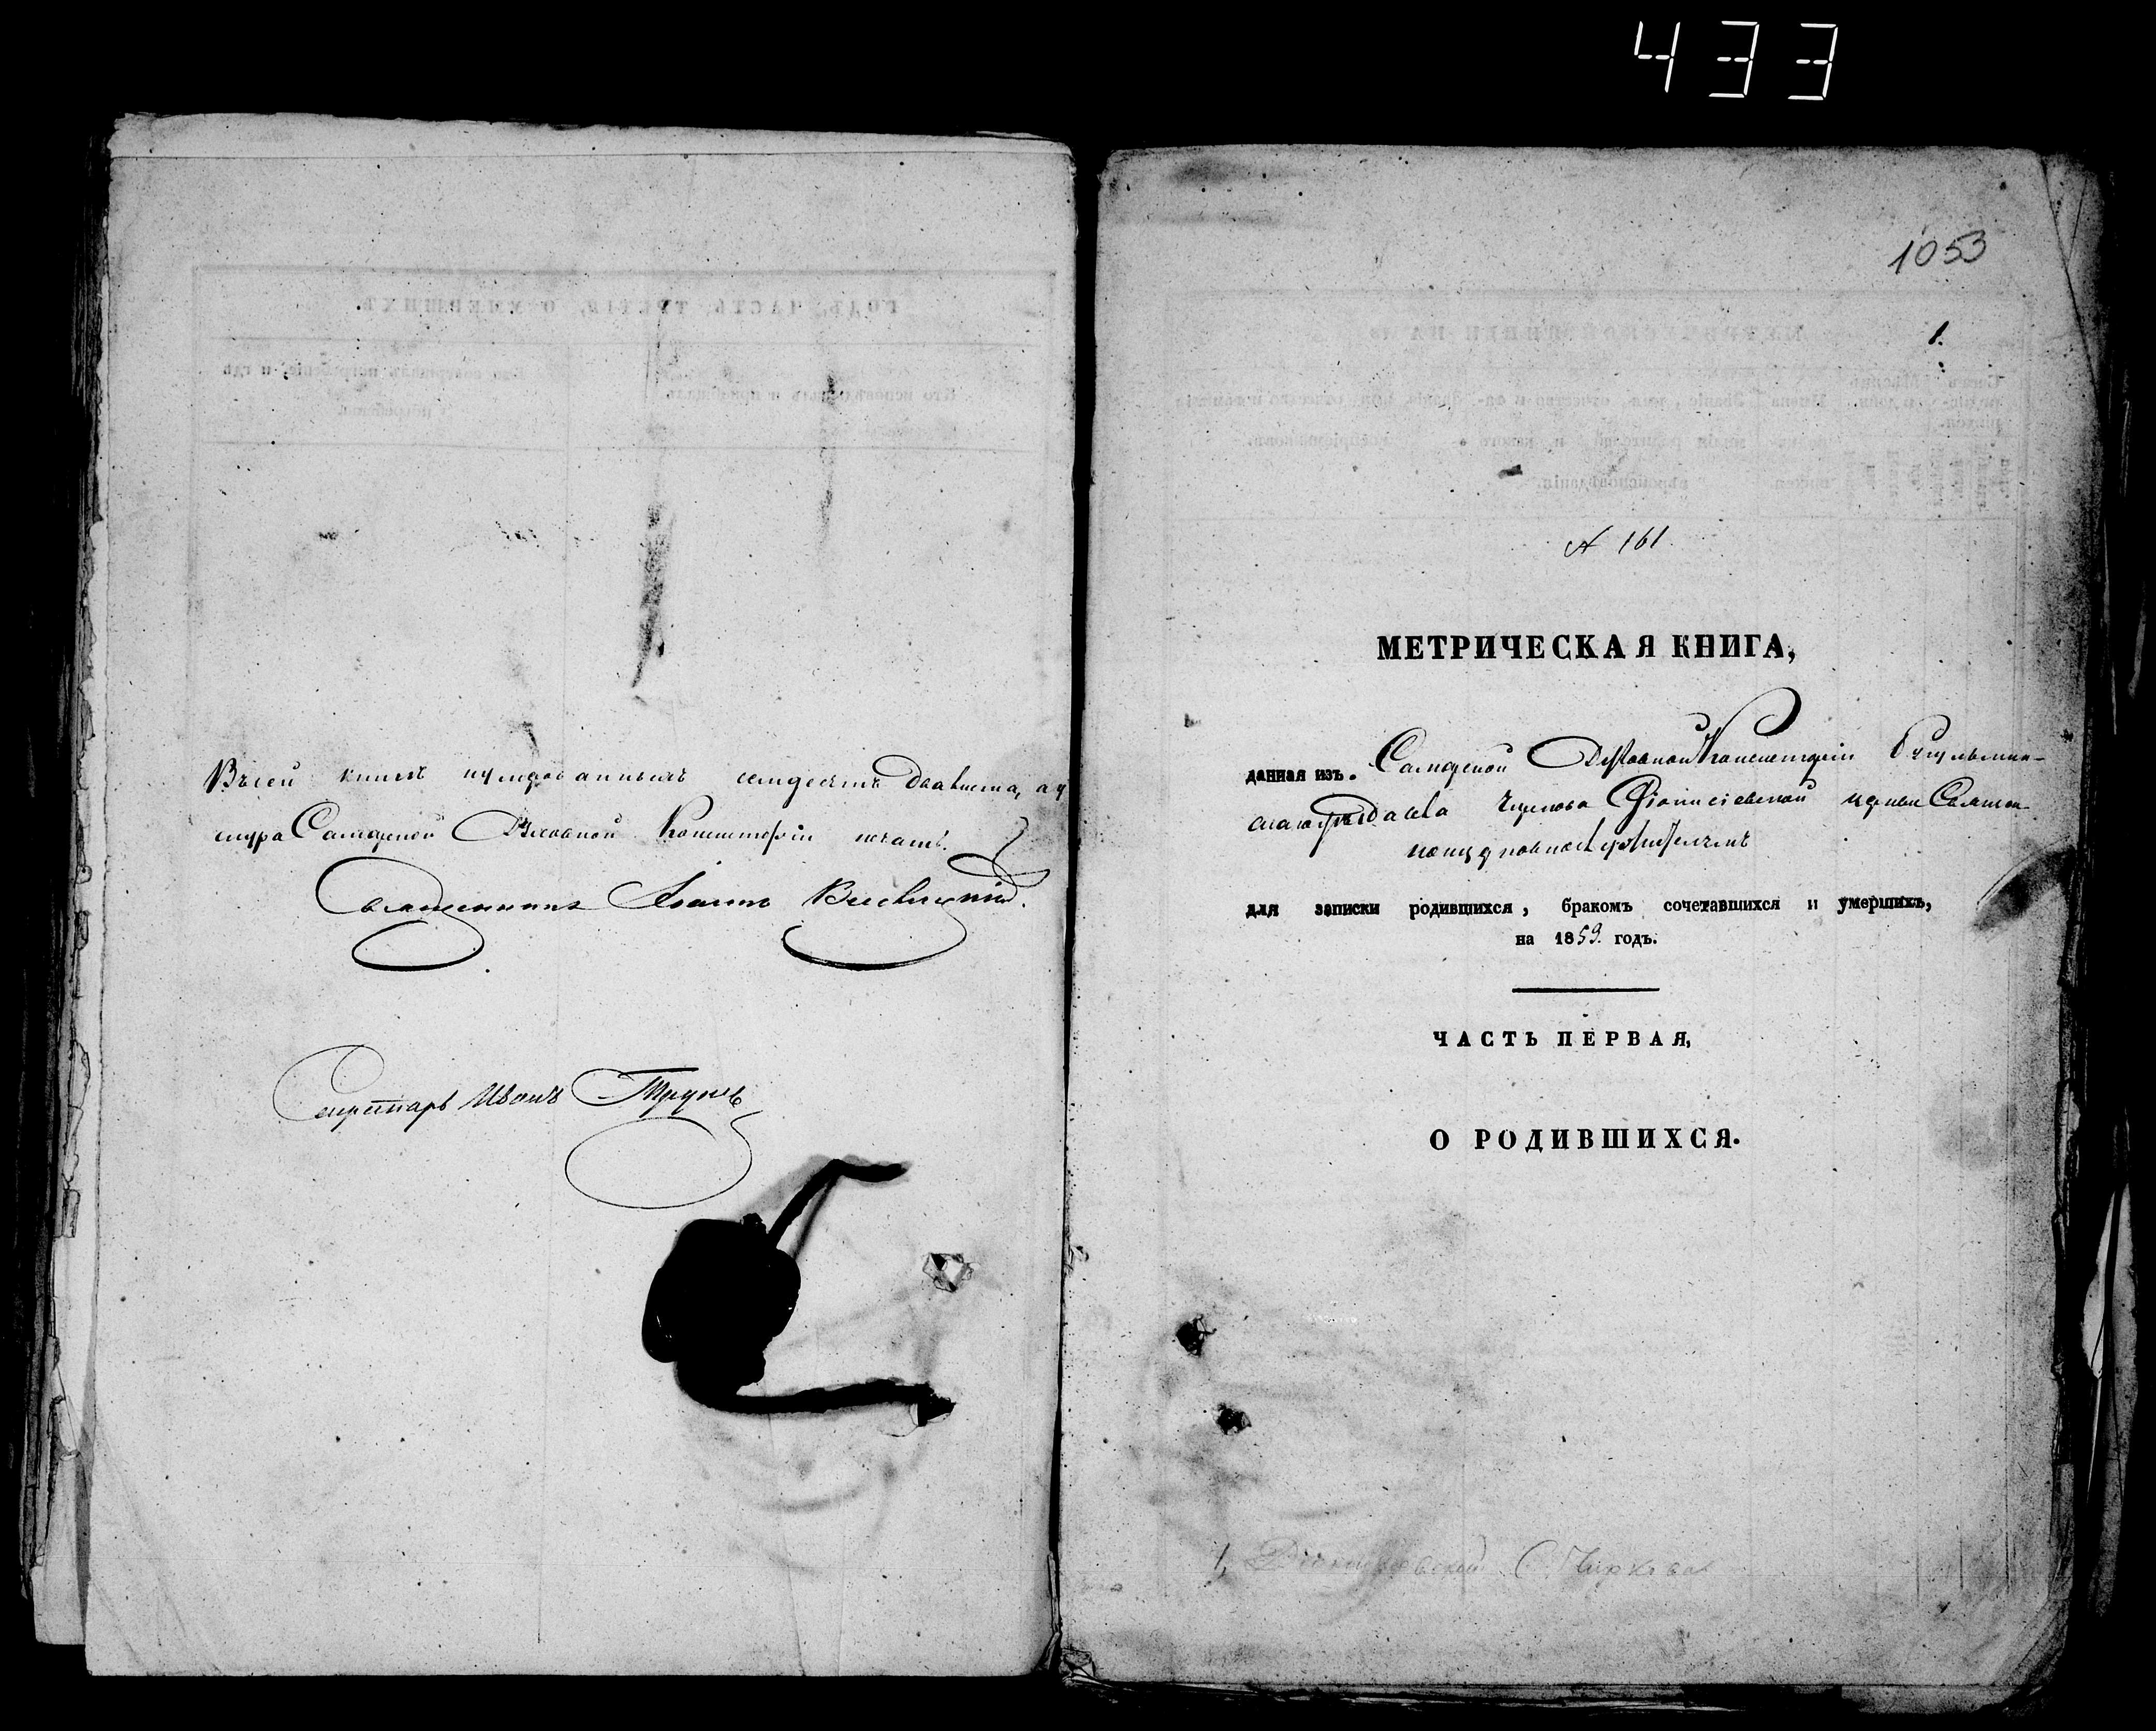 433
Въ сей книгѣ нумерованныхъ семдесятъ два листа, а у
шнура Самарской Духовной Консисторіи печать.
Священникъ Іоаннъ
Секретарь Иванъ
1053
1.
№ 161.
МЕТРИЧЕСКАЯ КНИГА,
данная изъ Самарской Духовной Консисторіи Бугульмин-
скаго уѣзда села Чиркова Дионисіевской церкви Священно
церковнослужителямъ
для записки родившихся, бракомъ сочетавшихся и умершихъ,
на 1859. годъ.
ЧАСТЬ ПЕРВАЯ,
О РОДИВШИХСЯ.
1, С. Чиркова